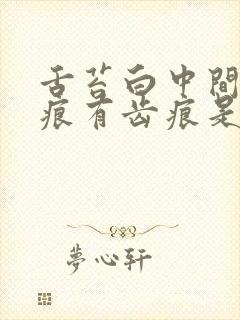 舌苔白中間
痕有齿痕是
夢心轩